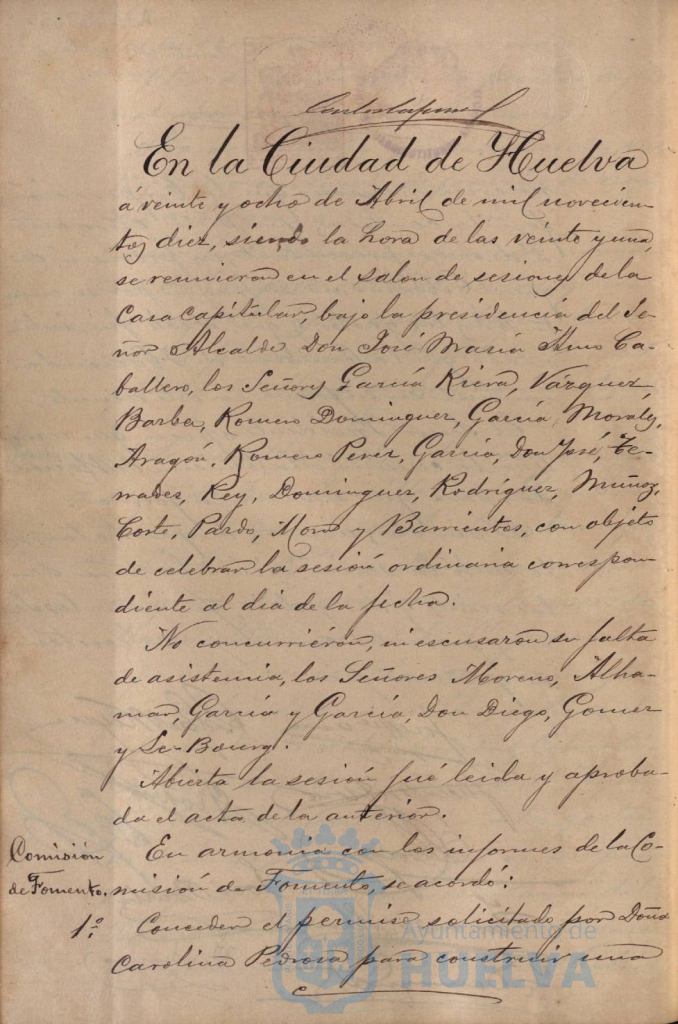 En la Ciudad de Huelva
á veinte y ocho de Abril de mil novecien-
tos diez, siendo la hora de las veinte y una,
se reunieron en el salon de sesiones de la
Casa capitular, bajo la presidencia del Se-
ñor Alcalde Don José María Amo Ca-
ballero, los Señores García Riera, Vázquez,
Barba, Romero Dominguez, García Morales,
Aragón, Romero Perez, García, Don José, Te-
rrades, Rey, Dominguez, Rodríguez, Muñoz,
Corte, Pardo, Mora y Barrientos, con objeto
de celebrar la sesión ordinaria correspon-
diente al dia de la fecha.
No concurrieron, ni escusaron su falta
de asistencia, los Señores Moreno, Alha-
mar, García y García, Don Diego, Gomez
y Le-Bourg.
Abierta la sesión fué leida y aproba-
da el acta de la anterior.
Comisión de Fomento.
En armonia con los informes de la Co-
misión de Fomento, se acordó:
1º. Conceder el permiso solicitado por Doña
Carolina Pedrosa para construir una
Ayuntamiento de
HUELVA